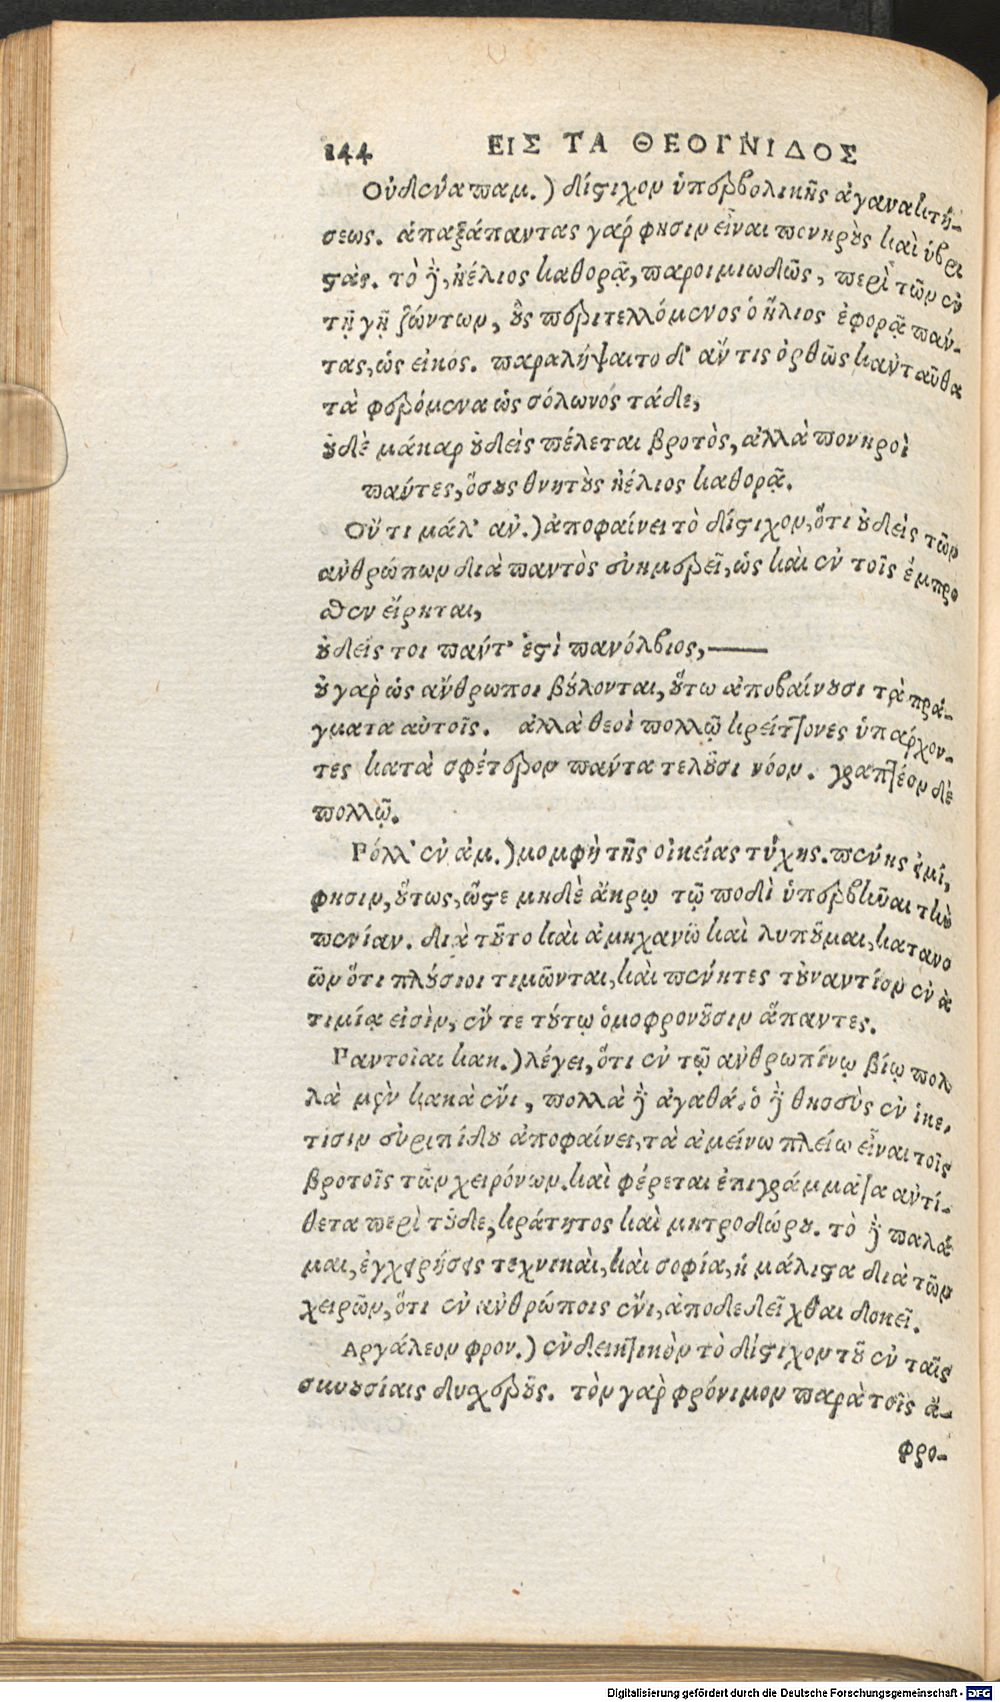 144 ΕΙΣ ΤΑ ΘΕΟΓΝΙΔΟΣ
Οὐδένα παμ.) δίστιχον ὑπερβολικῆς ἀγανακτή-
σεως. ἁπαξάπαντας γάρ φησιν εἶναι πονηροὺς καὶ ὑβρι
στάς. τὸ δὲ, ἠέλιος καθορᾷ, παροιμιωδῶς, περὶ τῶν ἐν
τῇ γῇ ζώντων, οὓς περιτελλόμενος ὁ ἥλιος ἐφορᾷ πάν-
τας, ὡς εἰκός. παραλήψαιτο δ' ἄν τις ὀρθῶς κἀνταῦθα
τὰ φερόμενα ὡς σόλωνός τάδε,
οὐδὲ μάκαρ οὐδεὶς πέλεται βροτὸς, ἀλλὰ πονηροὶ
πάντες, ὅσους θνητοὺς ἠέλιος καθορᾷ.
Οὔ τι μάλ' ἀν.) ἀποφαίνει τὸ δίστιχον, ὅτι οὐδεὶς τῶν
ἀνθρώπων διὰ παντὸς εὐημερεῖ, ὡς καὶ ἐν τοῖς ἔμπρο
σθεν εἴρηται,
οὐδείς τοι πάντ' ἐστὶ πανόλβιος,——
οὐ γὰρ ὡς ἄνθρωποι βούλονται, οὕτω ἀποβαίνουσι τὰ πρά-
γματα αὐτοῖς. ἀλλὰ θεοὶ πολλῷ κρείττονες ὑπάρχον-
τες κατὰ σφέτερον πάντα τελοῦσι νόον. γραπτέον δὲ
πολλῷ.
Πόλλ' ἐν ἀμ.) μομφὴ τῆς οἰκείας τύχης. πένης εἰμί,
φησιν, οὕτως, ὥστε μηδὲ ἄκρῳ τῷ ποδὶ ὑπερβῆναι τὴν
πενίαν. διὰ τοῦτο καὶ ἀμηχανῶ καὶ λυποῦμαι, κατανο
ῶν ὅτι πλούσιοι τιμῶνται, καὶ πένητες τοὐναντίον ἐν ἀ
τιμίᾳ εἰσὶν, ἔν τε τούτῳ ὁμοφρονοῦσιν ἅπαντες.
Παντοῖαι κακ.) λέγει, ὅτι ἐν τῷ ἀνθρωπίνῳ βίῳ πολ
λὰ μὲν κακὰ ἔνι, πολλὰ δὲ ἀγαθά. ὁ δὲ θησεὺς ἐν ἱκέ-
τισιν εὐριπίδου ἀποφαίνει, τὰ ἀμείνω πλείω εἶναι τοῖς
βροτοῖς τῶν χειρόνων. καὶ φέρεται ἐπιγράμματα ἀντί-
θετα περὶ τοῦδε, κράτητος καὶ μητροδώρου. τὸ δὲ παλά
μαι, ἐγχειρήσεις τεχνικαὶ, καὶ σοφία, ἡ μάλιστα διὰ τῶν
χειρῶν, ὅτι ἐν ἀνθρώποις ἔνι, ἀποδεδεῖχθαι δοκεῖ.
Αργάλεον φρον.) ἐνδεικτικὸν τὸ δίστιχον τοῦ ἐν ταῖς
συνουσίαις δυσχεροῦς. τὸν γὰρ φρόνιμον παρὰ τοῖς ἄ-
φρο-
Digitalisierung gefördert durch die Deutsche Forschungsgemeinschaft - DFG